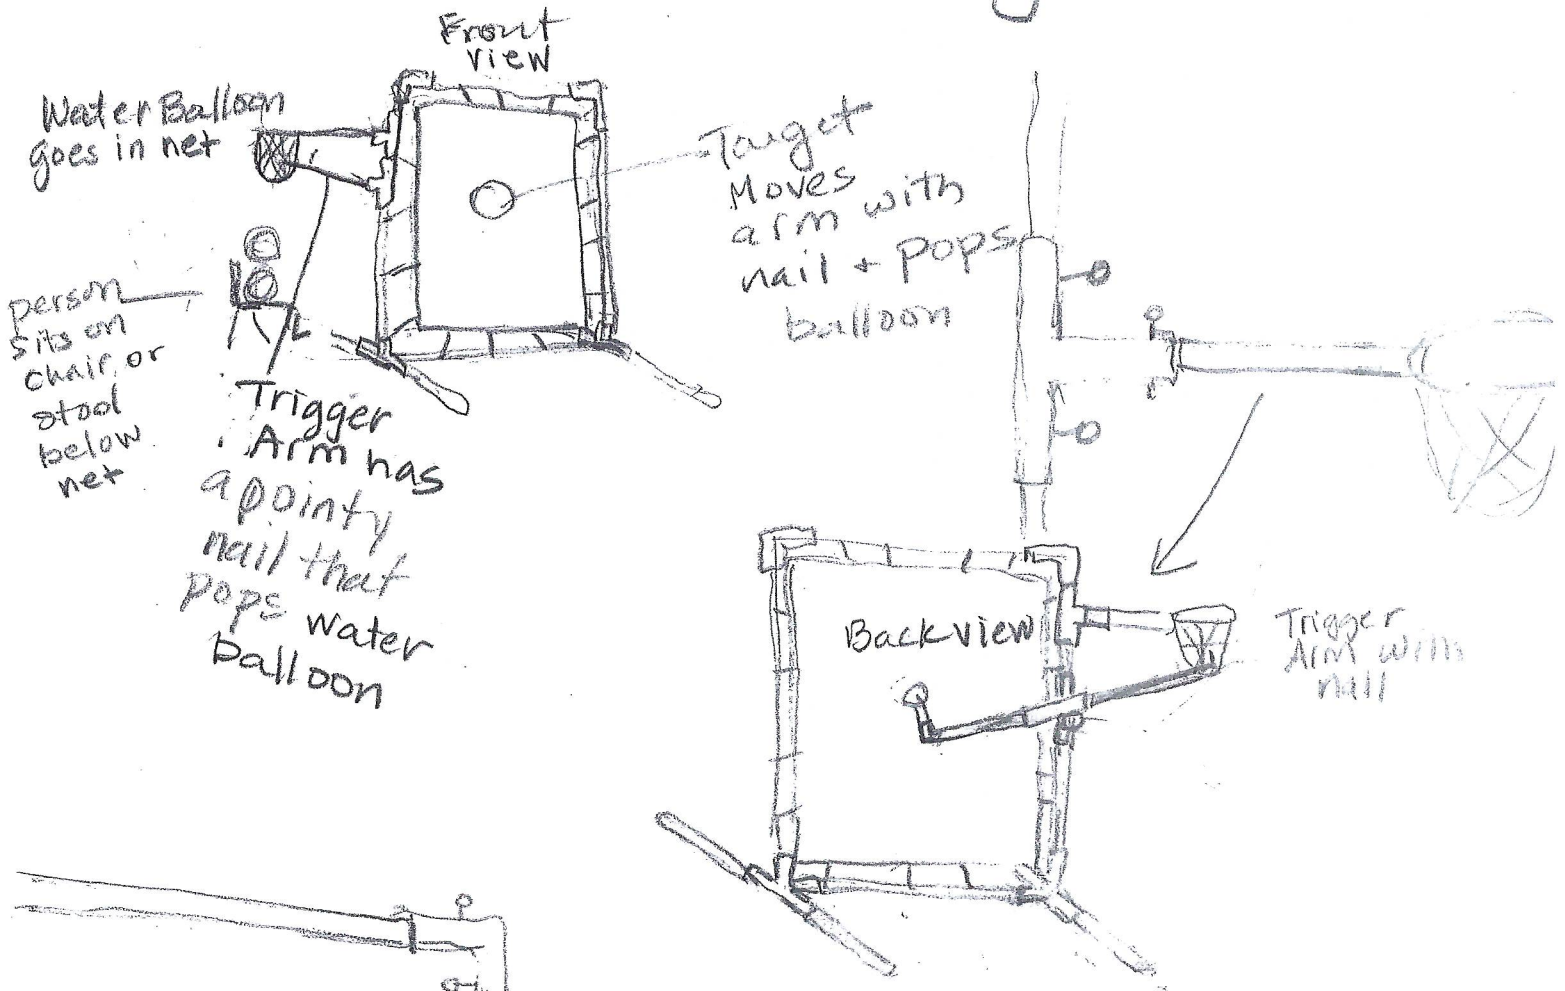 Front
view
Water Balloon
goes in net
Target
Moves
arm with
nail + pops
balloon
person
sits on
chair or
stool
below
net
Trigger
Arm has
a pointy
nail that
pops water
balloon
Back view
Trigger
Arm with
nail